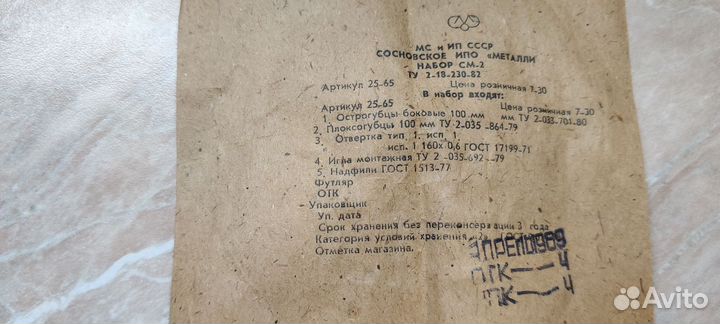 МС и ИП СССР
СОСНОВСКОЕ ИПО «МЕТАЛЛИ
НАБОР СМ-2
ТУ 2-18-230-82
Артикул 25-65 Цена розничная 7-30
В набор входят:
Артикул 25-65 Цена розничная 7-30
1. Острогубцы боковые 100 мм мм ТУ 2-033-701-80
2. Плоскогубцы 100 мм ТУ 2-035 -864-79
3. Отвертка тип 1, исп. 1,
исп. 1 160х 0,6 ГОСТ 17199-71
4. Игла монтажная ТУ 2 -035-692 -79
5. Надфили ГОСТ 1513-77
Футляр
ОТК
Упаковщик
Уп. дата
Срок хранения без переконсервации 3 года
Категория условий хранения «2»
Отметка магазина.
АПРЕЛЬ1989
ПТК — 4
ПК — 4
Avito